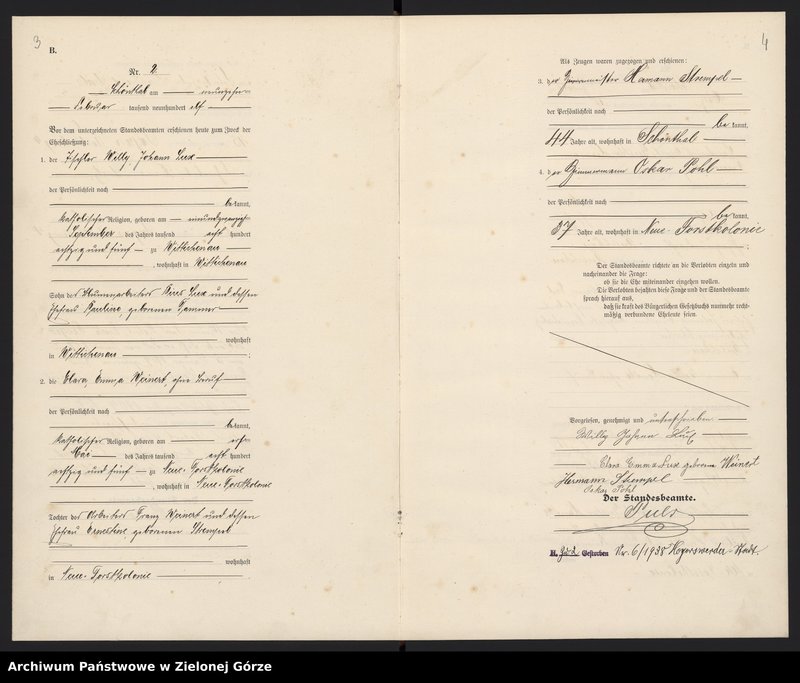 3
B.
Nr. 2.
Schönthal am neunzehn
Februar tausend neunhundert elf
Vor dem unterzeichneten Standesbeamten erschienen heute zum Zweck der
Eheschließung:
1. der Tischler Willy Johann Lux
der Persönlichkeit nach
bekannt,
katholischer Religion, geboren am
September des Jahres tausend acht hundert
achtzig und fünf zu Wittichenau
, wohnhaft in Wittichenau
Sohn des Lux und dessen
Ehefrau Pauline, geborenen
wohnhaft
in Wittichenau ;
2. die Clara, Emma Weinert, ohne Beruf
der Persönlichkeit nach
bekannt,
katholischer Religion, geboren am
Mai des Jahres tausend acht hundert
achtzig und fünf zu Neue-Forstkolonie
, wohnhaft in Neue-Forstkolonie
Tochter des Arbeiters Franz Weinert und dessen
Ehefrau Ernestine geborenen Stempel
wohnhaft
in Neue-Forstkolonie
4
Als Zeugen waren zugezogen und erschienen:
3. der Hermann Stempel
der Persönlichkeit nach
bekannt,
44 Jahre alt, wohnhaft in Schönthal
4. der Zimmermann Oskar Pohl
der Persönlichkeit nach
bekannt,
37 Jahre alt, wohnhaft in Neue-Forstkolonie
Der Standesbeamte richtete an die Verlobten einzeln und
nacheinander die Frage:
ob sie die Ehe miteinander eingehen wollen.
Die Verlobten bejahten diese Frage und der Standesbeamte
sprach hierauf aus,
daß sie kraft des Bürgerlichen Gesetzbuchs nunmehr recht-
mäßig verbundene Eheleute seien.
Vorgelesen, genehmigt und unterschrieben
Willy Johann Lux
Clara Emma Lux geborene Weinert
Hermann Stempel
Oskar Pohl
Der Standesbeamte.
Puls
H. Gestorben Nr. 6/1938 Hoyerswerda-Stadt.
Archiwum Państwowe w Zielonej Górze